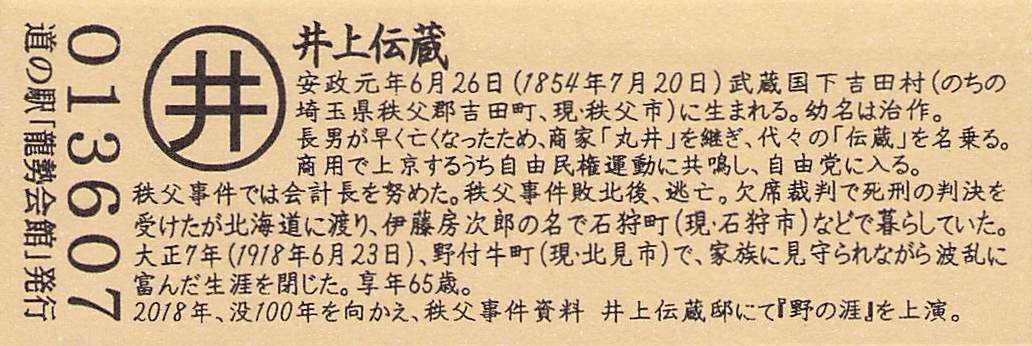 013607
道の駅「龍勢会館」発行
井
井上伝蔵
安政元年6月26日(1854年7月20日)武蔵国下吉田村(のちの
埼玉県秩父郡吉田町、現・秩父市)に生まれる。幼名は治作。
長男が早く亡くなったため、商家「丸井」を継ぎ、代々の「伝蔵」を名乗る。
商用で上京するうち自由民権運動に共鳴し、自由党に入る。
秩父事件では会計長を努めた。秩父事件敗北後、逃亡。欠席裁判で死刑の判決を
受けたが北海道に渡り、伊藤房次郎の名で石狩町(現・石狩市)などで暮らしていた。
大正7年(1918年6月23日)、野付牛町(現・北見市)で、家族に見守られながら波乱に
富んだ生涯を閉じた。享年65歳。
2018年、没100年を向かえ、秩父事件資料 井上伝蔵邸にて『野の涯』を上演。